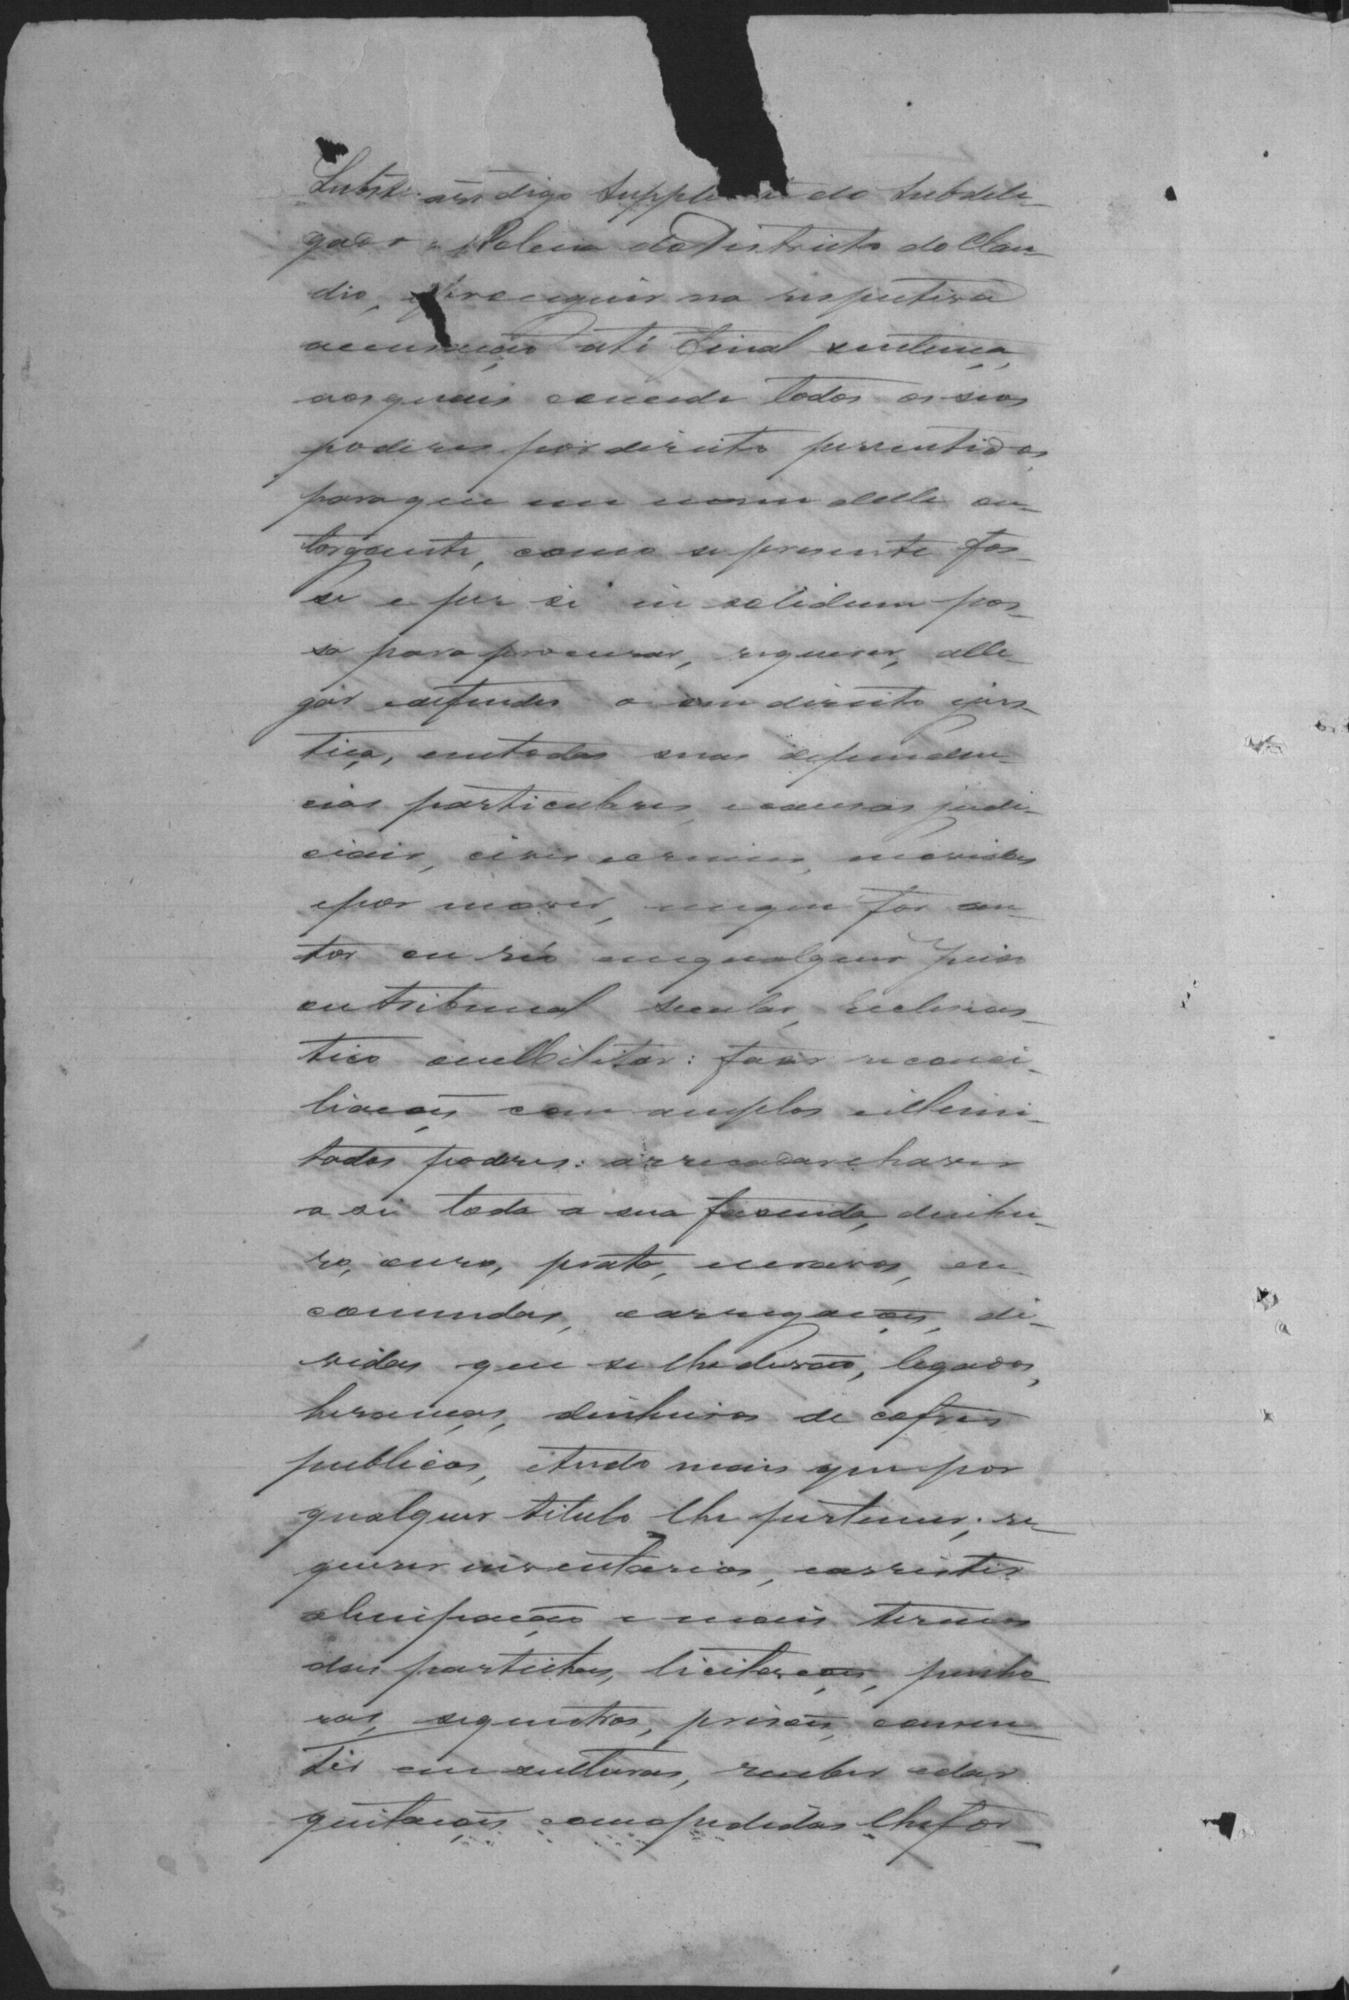 digo supplente do Subdele-
gado Policia do Districto do Clau-
dio, proceguir na respetiva
accusação até final sentença,
aos quais concede todos os seos
poderes por direito permetidos,
para que em nome delle ou-
torgante, como se presente fos-
se e per si in solidum pos-
sa para procurar, requerer, alle-
gar e defender o seu direito e jus-
tiça, em todas suas dependen-
cias particulares, e causas judi-
ciais, civeis e crimes, movidas
e por mover, em que for au-
tor ou reo em qualquer Juizo
ou tribunal secular, Eclesias-
tico ou Militar: fazer reconci-
liações com amplos e illimi-
tados poderes: arrecadar e haver
a si toda a sua fazenda, dinhei-
ro, ouro, prata, escravos, en-
comendas, carregações, di-
vidas que se lhe deverão, legados,
heranças, dinheiros de cofres
publicos, e tudo mais que por
qualquer titulo lhe pertencer; re-
querer inventarios, e assistir
a louvação e mais termos
das partilhas, licitações, penho-
ras, sequestros, prisões, consen-
tir em solturas, receber e dar
quitações como pedidas lhe for-